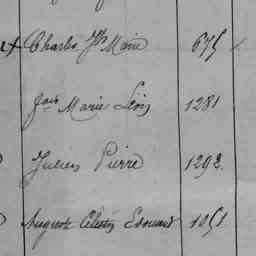 Charles Jh Marie 675
Jean Marie Léon 1281
Julien Pierre 1292
Auguste Célestin Edouard 1051